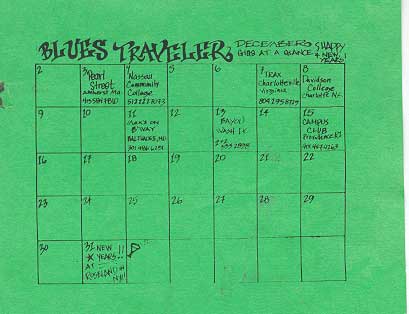 BLUES TRAVELER
DECEMBERS
GIGS AT A GLANCE
& HAPPY
NEW
YEARS!
2
3
Pearl
Street
Amherst Ma.
4
Nassau
Community
College
5
6
7
TRAX
Charlottesville
Virginia
804 295 8729
8
Davidson
College
Charlotte N.C.
9
10
11
MAX'S ON
B'WAY
BALTIMORE, MD
12
13
BAYOU
WASH D.C.
14
15
CAMPUS
CLUB
Providence RI
16
17
18
19
20
21
22
23
24
25
26
27
28
29
30
31 NEW
YEARS!!
AT
ROSELAND in
NY!!